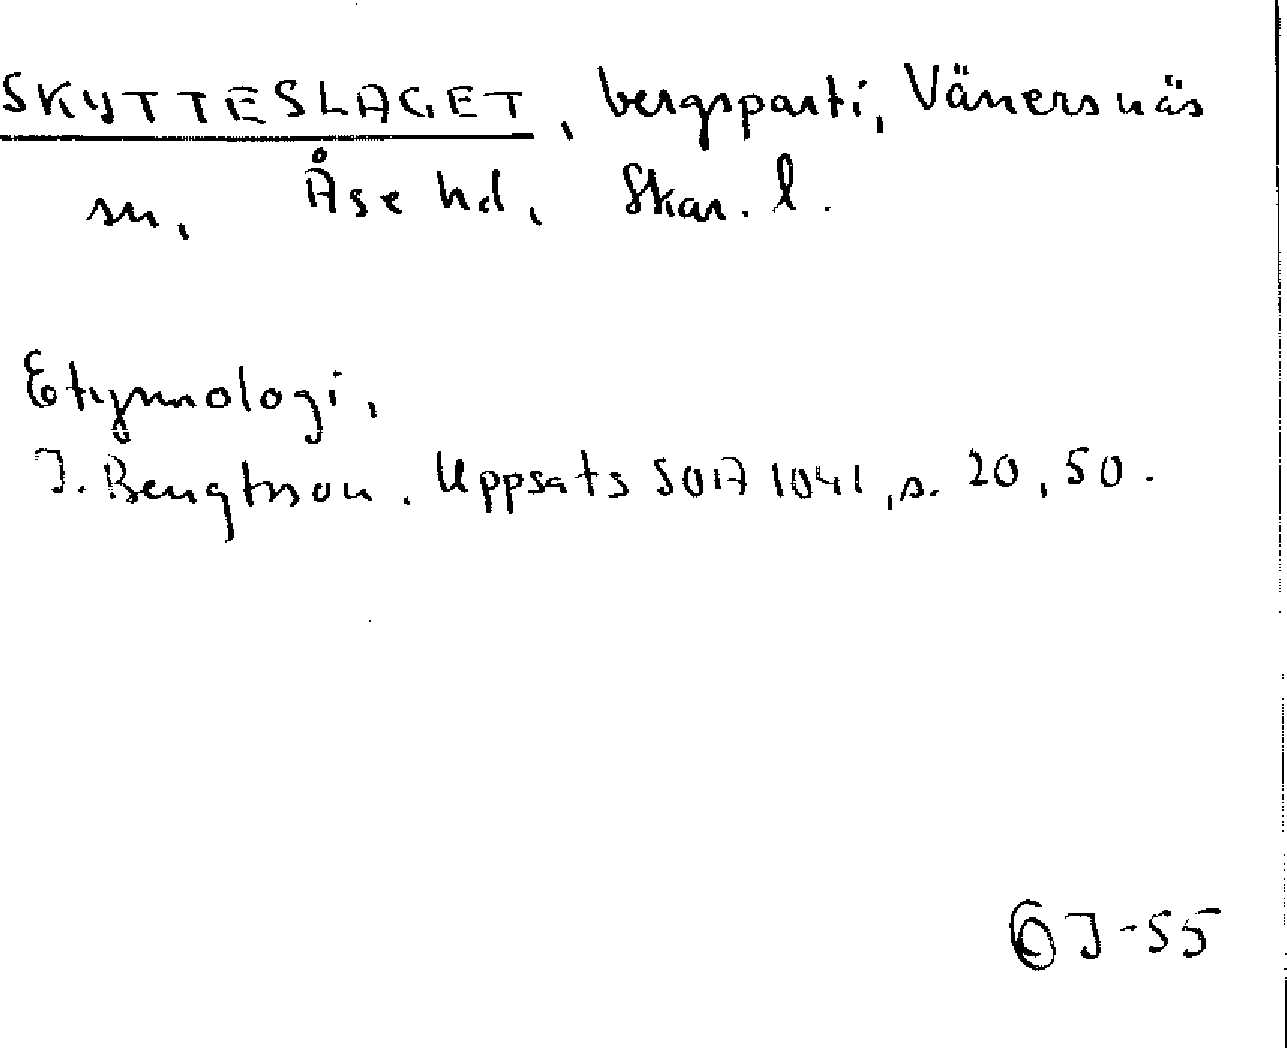 SKYTTESLAGET, bergsparti, Vänersnäs
sn, Åse hd, Skar. l.
Etymologi,
J. Bengtsson. Uppsats SOA 1041, s. 20, 50.
J-55